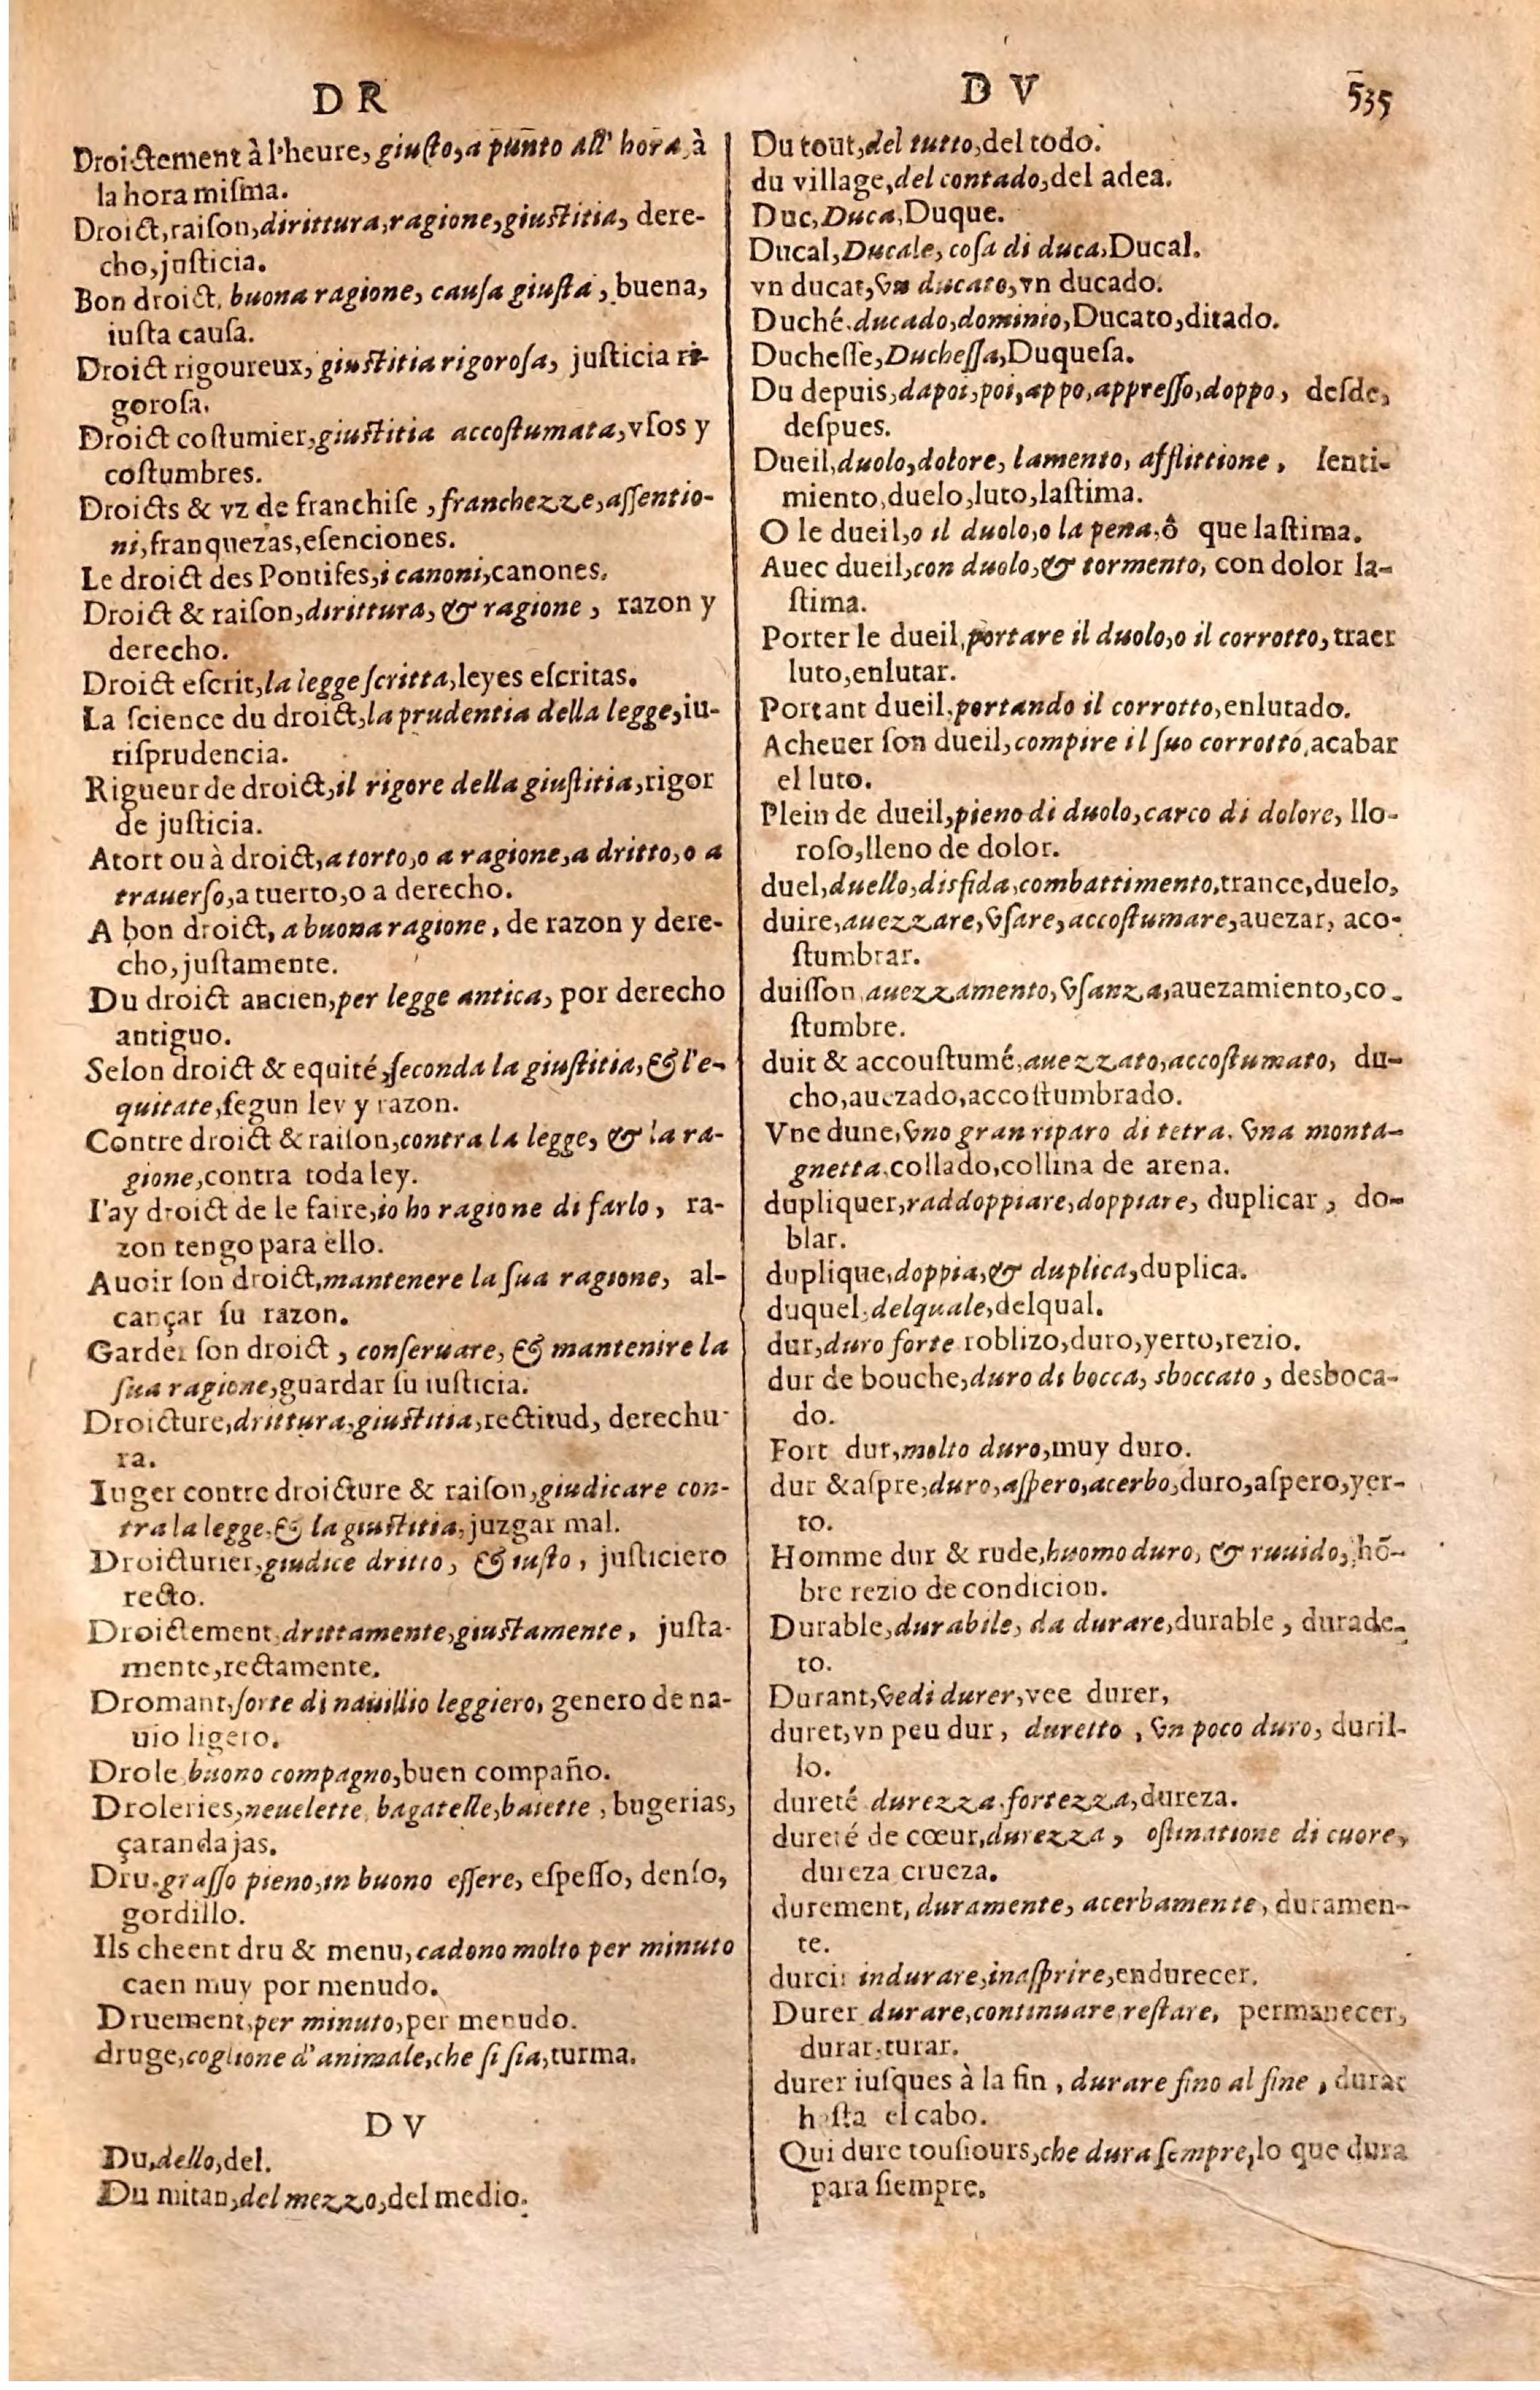 D R
Droictement à l'heure, giusto, a punto all' hora, à
la hora misma.
Droict, raiſon, dirittura, ragione, giustitia, dere-
cho, juſticia.
Bon droict, buona ragione, cauſa giuſta, buena,
iuſta cauſa.
Droict rigoureux, giustitia rigoroſa, juſticia ri-
goroſa.
Droict coſtumier, giustitia accoſtumata, vſos y
coſtumbres.
Droicts & vz de franchiſe, franchezze, aſſentio-
ni, franquezas, eſenciones.
Le droict des Pontifes, i canoni, canones.
Droict & raiſon, dirittura, & ragione, razon y
derecho.
Droict eſcrit, la legge ſcritta, leyes eſcritas.
La ſcience du droict, la prudentia della legge, iu-
riſprudencia.
Rigueur de droict, il rigore della giuſtitia, rigor
de juſticia.
Atort ou à droict, a torto, o a ragione, a dritto, o a
trauerſo, a tuerto, o a derecho.
A bon droict, a buona ragione, de razon y dere-
cho, juſtamente.
Du droict ancien, per legge antica, por derecho
antiguo.
Selon droict & equité, ſeconda la giuſtitia, & l'e-
quitate, ſegun ley y razon.
Contre droict & raiſon, contra la legge, & la ra-
gione, contra toda ley.
I'ay droict de le faire, io ho ragione di farlo, ra-
zon tengo para ello.
Auoir ſon droict, mantenere la ſua ragione, al-
cançar ſu razon.
Garder ſon droict, conſeruare, & mantenire la
ſua ragione, guardar ſu iuſticia.
Droicture, drittura, giustitia, rectitud, derechu-
ra.
Iuger contre droicture & raiſon, giudicare con-
tra la legge, & la giustitia, juzgar mal.
Droicturier, giudice dritto, & iuſto, juſticiero
recto.
Droictement, drittamente, giustamente, juſta-
mente, rectamente.
Dromant, ſorte di nauillio leggiero, genero de na-
uio ligero.
Drole, buono compagno, buen compaño.
Droleries, neuelette, bagatelle, baiette, bugerias,
çarandajas.
Dru, graſſo pieno, in buono eſſere, eſpeſſo, denſo,
gordillo.
Ils cheent dru & menu, cadono molto per minuto
caen muy por menudo.
Druement, per minuto, per menudo.
druge, coglione d'animale, che ſi ſia, turma.
D V
Du, dello, del.
Du mitan, del mezzo, del medio.
D V 535
Du tout, del tutto, del todo.
du village, del contado, del adea.
Duc, Duca, Duque.
Ducal, Ducale, coſa di duca, Ducal.
vn ducat, vn ducato, vn ducado.
Duché, ducado, dominio, Ducato, ditado.
Ducheſſe, Ducheſſa, Duqueſa.
Du depuis, dapoi, poi, appo, appreſſo, doppo, deſde,
deſpues.
Dueil, duolo, dolore, lamento, afflittione, ſenti-
miento, duelo, luto, laſtima.
O le dueil, o il duolo, o la pena, ô que laſtima.
Auec dueil, con duolo, & tormento, con dolor la-
ſtima.
Porter le dueil, portare il duolo, o il corrotto, traer
luto, enlutar.
Portant dueil, portando il corrotto, enlutado.
Acheuer ſon dueil, compire il ſuo corrotto, acabar
el luto.
Plein de dueil, pieno di duolo, carco di dolore, llo-
roſo, lleno de dolor.
duel, duello, disfida, combattimento, trance, duelo,
duire, auezzare, vſare, accoſtumare, auezar, aco-
ſtumbrar.
duiſſon, auezzamento, vſanza, auezamiento, co-
ſtumbre.
duit & accouſtumé, auezzato, accoſtumato, du-
cho, auezado, accoſtumbrado.
Vne dune, vno gran riparo di tetra, vna monta-
gnetta, collado, collina de arena.
dupliquer, raddoppiare, doppiare, duplicar, do-
blar.
duplique, doppia, & duplica, duplica.
duquel, delquale, delqual.
dur, duro forte roblizo, duro, yerto, rezio.
dur de bouche, duro di bocca, sboccato, desboca-
do.
Fort dur, molto duro, muy duro.
dur & aſpre, duro, aſpero, acerbo, duro, aſpero, yer-
to.
Homme dur & rude, huomo duro, & ruuido, hõ-
bre rezio de condicion.
Durable, durabile, da durare, durable, durade-
ro.
Durant, vedi durer, vee durer,
duret, vn peu dur, duretto, vn poco duro, duril-
lo.
dureté durezza, fortezza, dureza.
dureté de cœur, durezza, oſtinatione di cuore,
dureza crueza.
durement, duramente, acerbamente, duramen-
te.
durcir indurare, inaſprire, endurecer.
Durer durare, continuare, reſtare, permanecer,
durar, turar.
durer iuſques à la fin, durare fino al fine, durar
haſta el cabo.
Qui dure touſiours, che dura ſempre, lo que dura
para ſiempre.